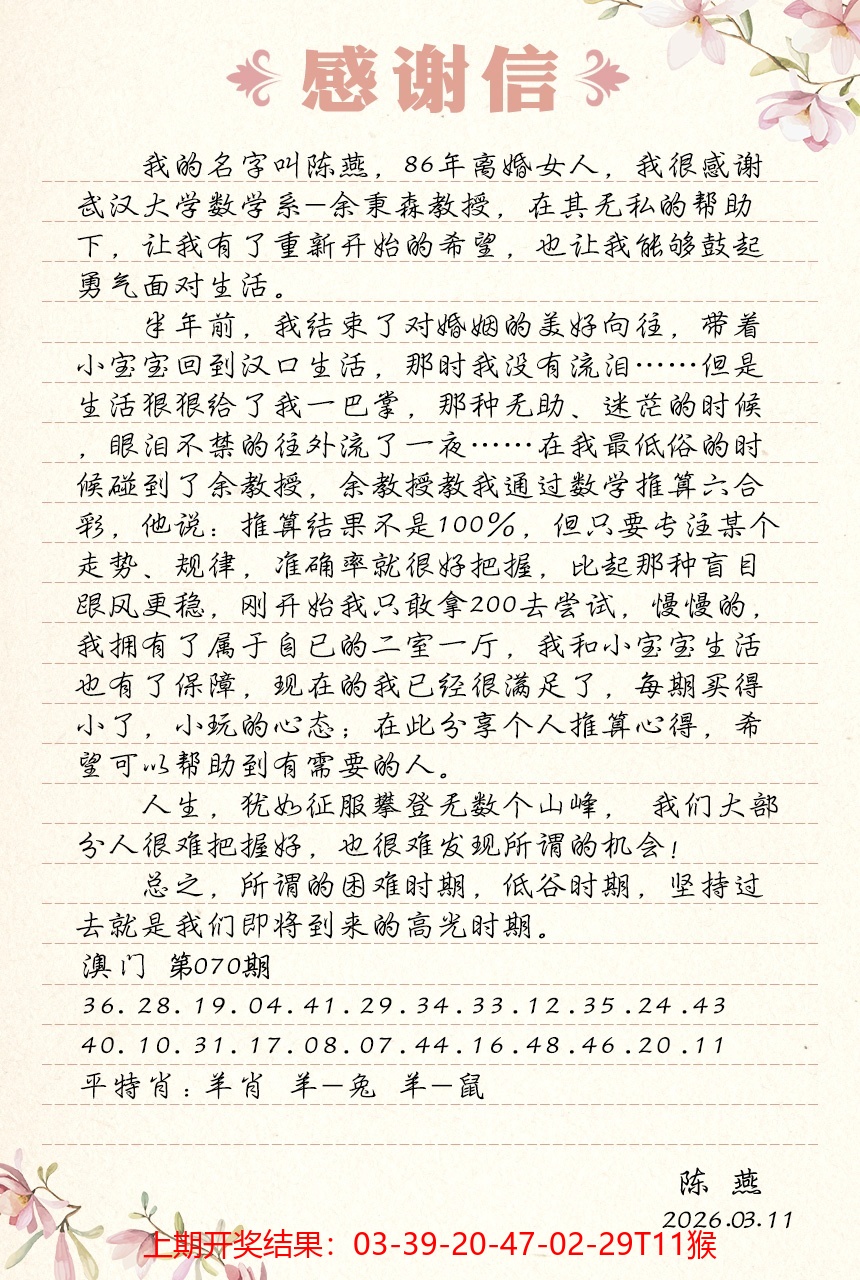 感谢信
我的名字叫陈燕，86年离婚女人，我很感谢
武汉大学数学系—余秉森教授，在其无私的帮助
下，让我有了重新开始的希望，也让我能够鼓起
勇气面对生活。
半年前，我结束了对婚姻的美好向往，带着
小宝宝回到汉口生活，那时我没有流泪……但是
生活狠狠给了我一巴掌，那种无助、迷茫的时候
，眼泪不禁的往外流了一夜……在我最低俗的时
候碰到了余教授，余教授教我通过数学推算六合
彩，他说：推算结果不是100%，但只要专注某个
走势、规律，准确率就很好把握，比起那种盲目
跟风更稳，刚开始我只敢拿200去尝试，慢慢的，
我拥有了属于自已的二室一厅，我和小宝宝生活
也有了保障，现在的我已经很满足了，每期买得
小了，小玩的心态；在此分享个人推算心得，希
望可以帮助到有需要的人。
人生，犹如征服攀登无数个山峰， 我们大部
分人很难把握好，也很难发现所谓的机会！
总之，所谓的困难时期，低谷时期，坚持过
去就是我们即将到来的高光时期。
澳门 第070期
36.28.19.04.41.29.34.33.12.35.24.43
40.10.31.17.08.07.44.16.48.46.20.11
平特肖：羊肖 羊—兔 羊—鼠
陈 燕
2026.03.11
上期开奖结果：03-39-20-47-02-29T11猴